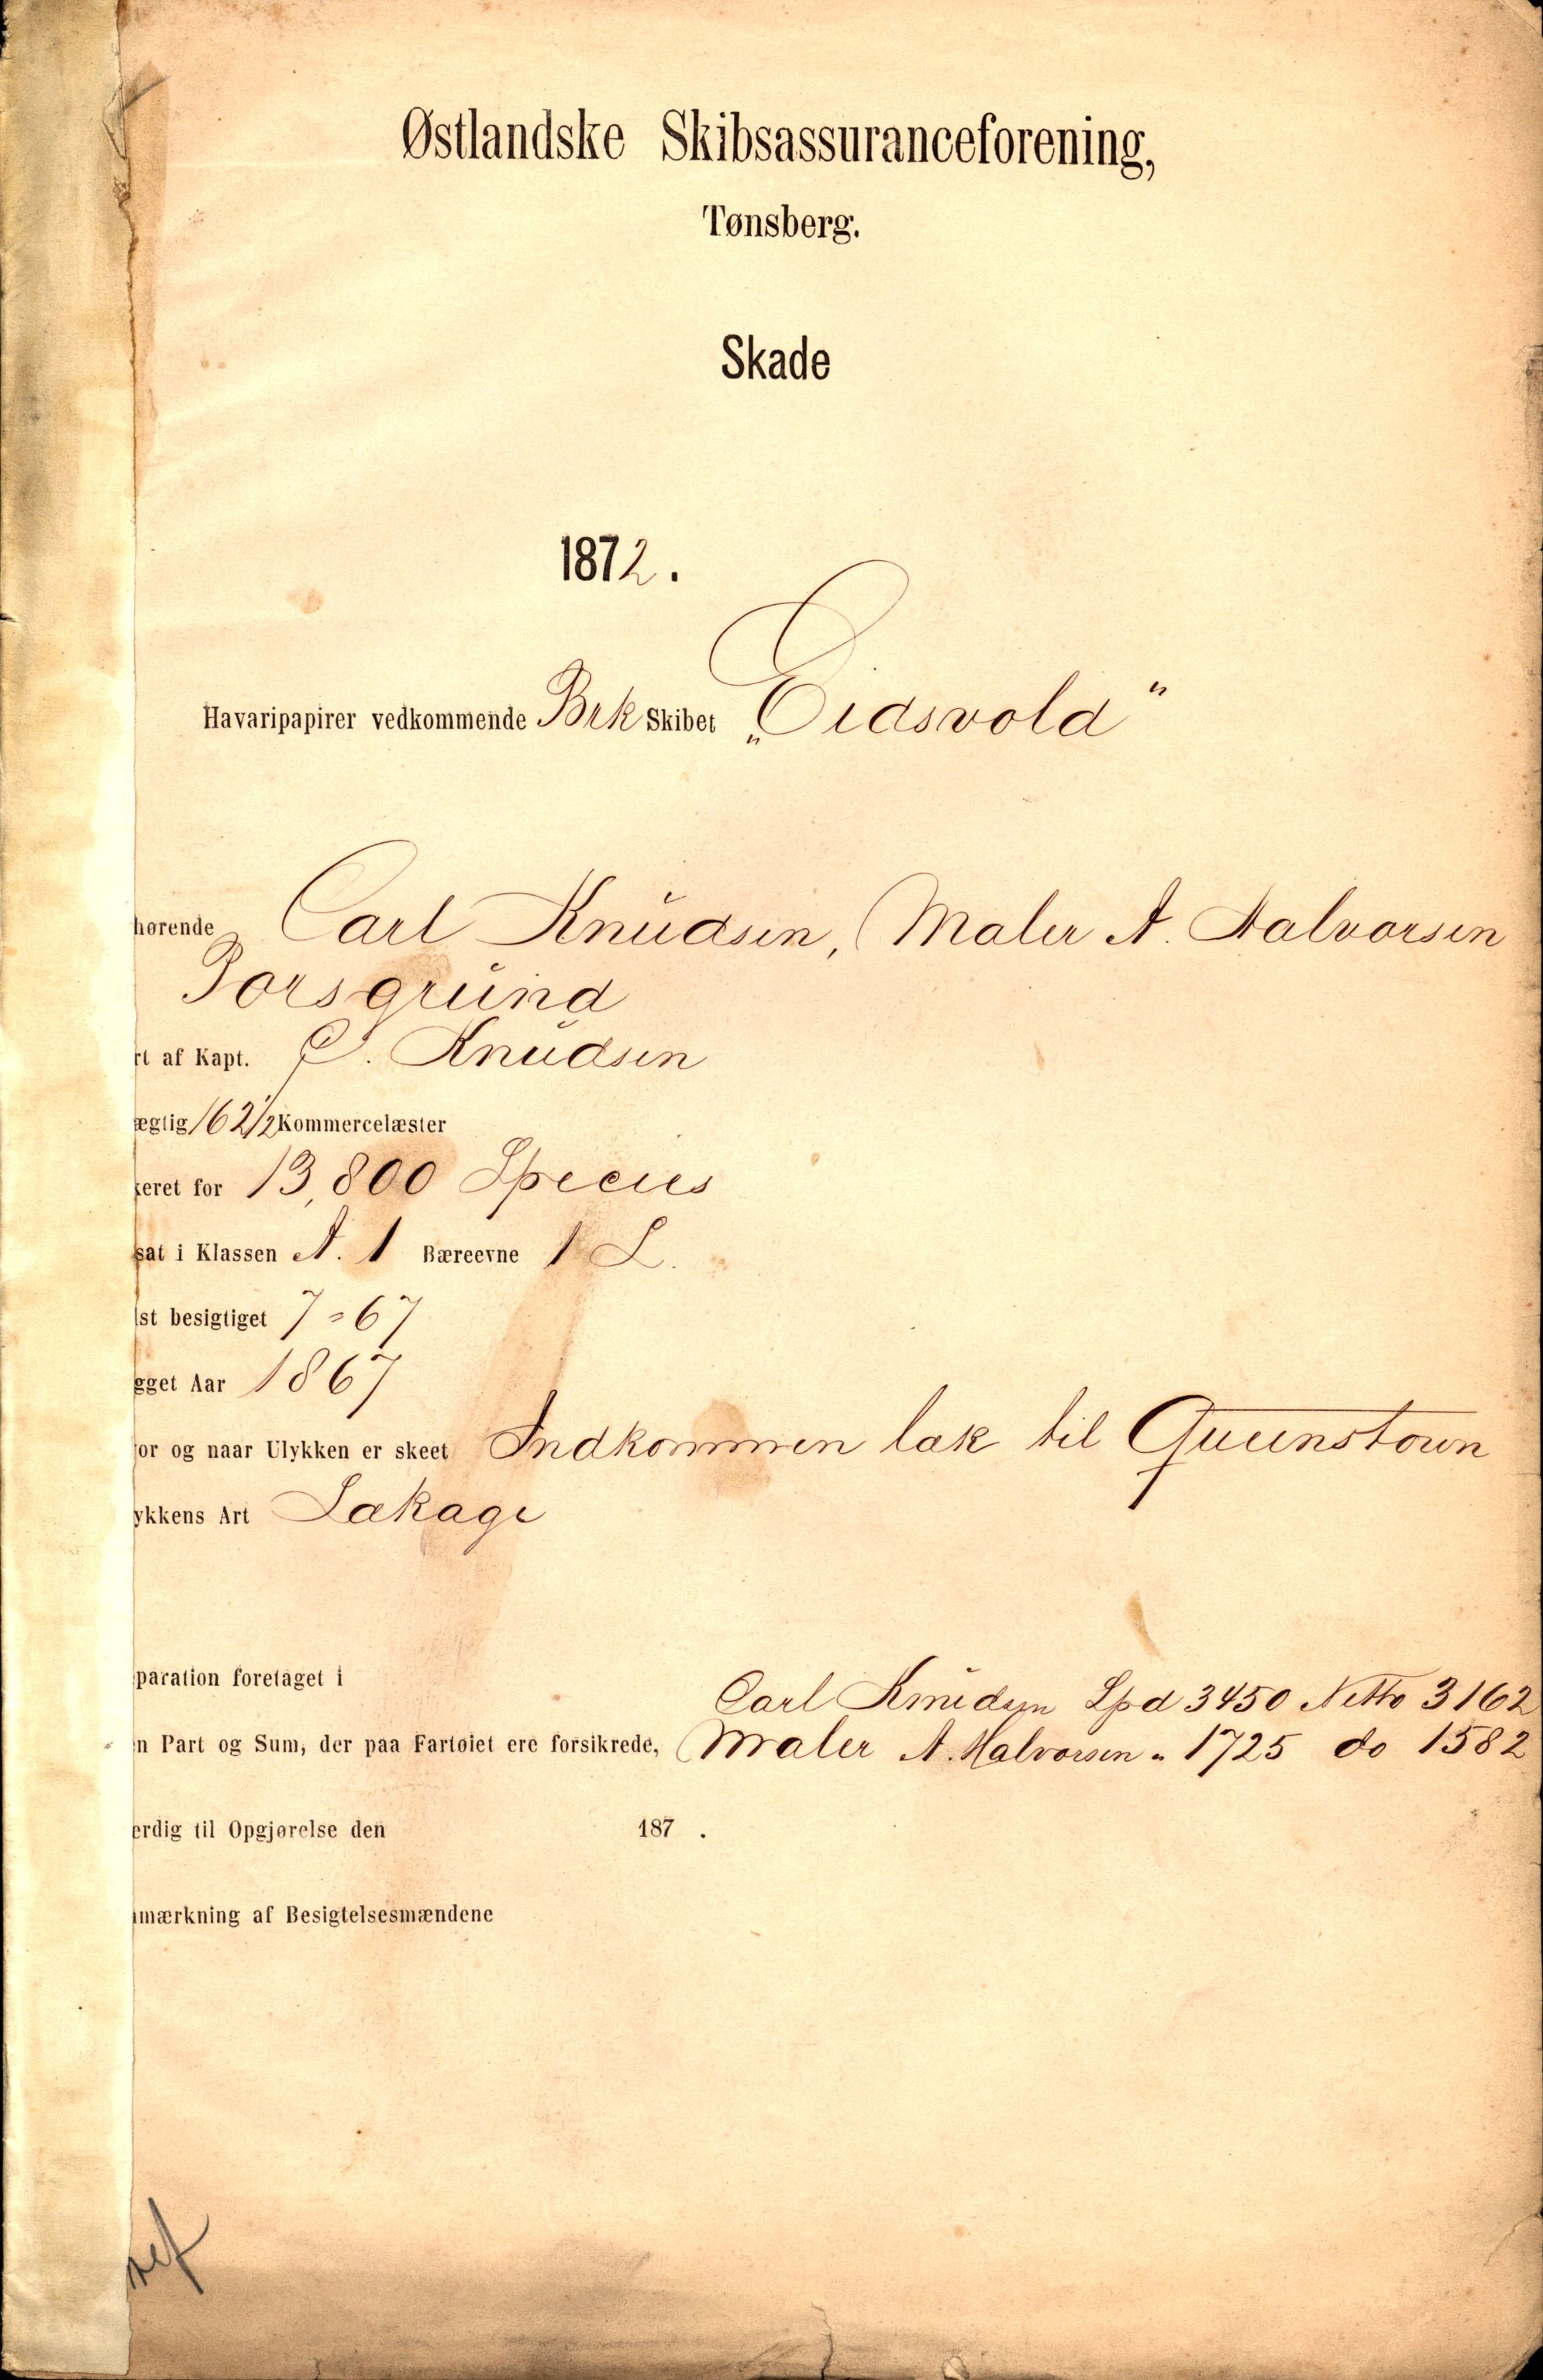 Østlandske Skibsassuranceforening,
Tønsberg.
Skade
1872.
Havaripapirer vedkommende Brk Skibet „Eidsvold"
hørende Carl Knudsen, Maler A. Halvorsen
Porsgrund
rt af Kapt. C. Knudsen
ægtig 162 1/2 Kommercelæster
keret for 13,800 Species
sat i Klassen A. 1 Bæreevne 1 L.
lst besigtiget 7-67
gget Aar 1867
or og naar Ulykken er skeet Indkommen læk til Queenstown
ykkens Art Lækage
paration foretaget i
Carl Knudsen Spd 3450 Netto 3162
n Part og Sum, der paa Fartøiet ere forsikrede, Maler A. Halvorsen " 1725 do 1582
erdig til Opgjørelse den 187 .
mærkning af Besigtelsesmændene